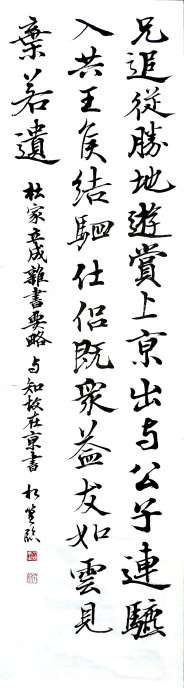 兄追従勝地遊賞上京出与公子連驂
入共王侯結駟仕侶既衆益友如雲見
棄若遺
杜家立成雑書要略 与知故在京書